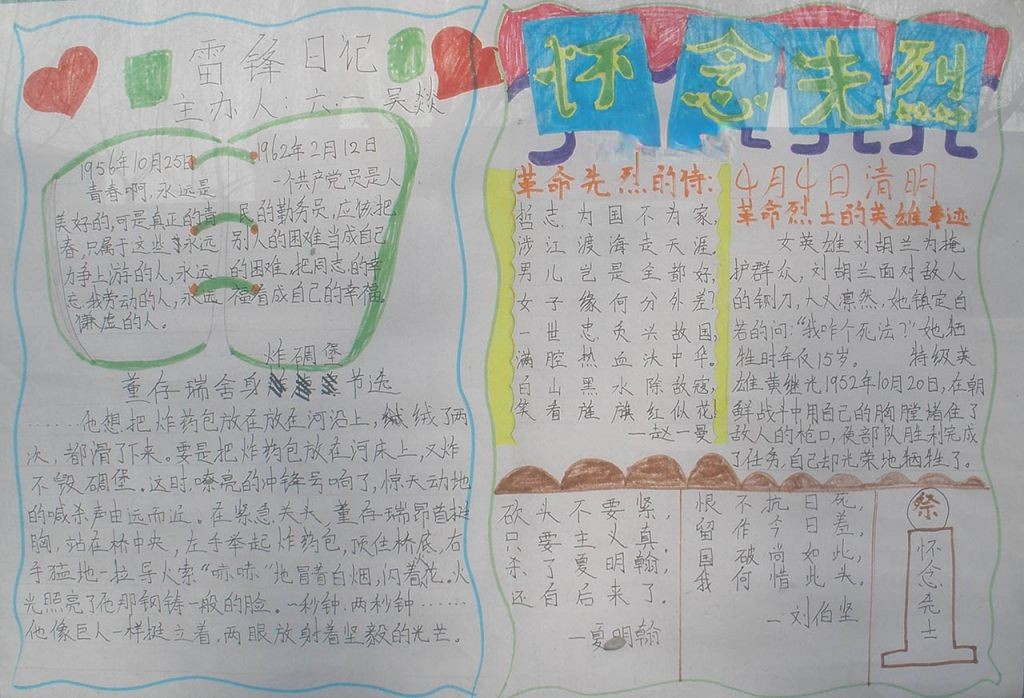 雷锋日记
主办人:六·一 吴燚
1956年10月25日
青春啊,永远是
美好的,可是真正的青
春,只属于这些永远
力争上游的人,永远
忘我劳动的人,永远
谦虚的人。
1962年2月12日
一个共产党员是人
民的勤务员,应该把
别人的困难当成自己
的困难,把同志的幸
福看成自己的幸福。
炸碉堡
董存瑞舍身 节选
……他想把炸药包放在放在河沿上,绒了两
次,都滑了下来。要是把炸药包放在河床上,又炸
不毁碉堡。这时,嘹亮的冲锋号响了,惊天动地
的喊杀声由远而近。在紧急关头,董存瑞昂首挺
胸,站在桥中央,左手举起炸药包,顶住桥底,右
手猛地一拉导火索“哧哧”地冒着白烟,闪着花。火
光照亮了他那钢铸一般的脸。一秒钟.两秒钟……
他像巨人一样挺立着,两眼放射着坚毅的光芒。
怀念先烈
革命先烈的侍:
哲志为国不为家,
涉江渡海走天涯。
男儿岂是全都好,
女子缘何分外差?
一世忠灸兴故国,
满腔热血沃中华。
白山黑水除故寇,
笑看旌旗红似花。
—赵一曼
4月4日清明
革命烈士的英雄事迹
女英雄刘胡兰为掩
护群众,刘胡兰面对敌人
的铡刀,大义凛然,她镇定自
若的问:“我咋个死法?”她牺
牲时年仅15岁。 特级英
雄黄继光1952年10月20日,在朝
鲜战斗中用自己的胸膛堵住了
敌人的枪口,使部队胜利完成
了任务,自己却光荣地牺牲了。
砍头不要紧,
只要主义真,
杀了夏明翰,
还有后来了.
—夏明翰
恨不抗日死,
留作今日羞,
国破尚如此,
我何惜此头.
—刘伯坚
祭
怀念先士